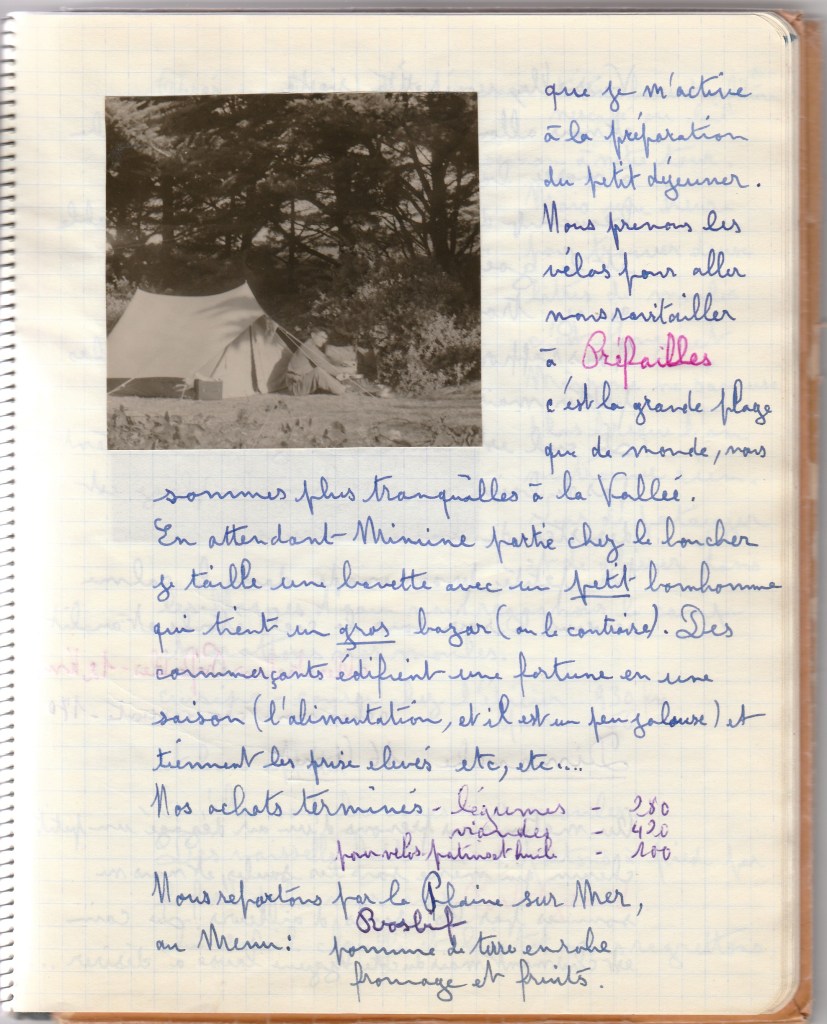 que je m'active
à la préparation
du petit déjeuner.
Nous prenons les
vélos pour aller
nous ravitailler
à Préfailles
c'est la grande plage
que de monde, nous
sommes plus tranquilles à la Vallée.
En attendant Mimine partie chez le boucher
je taille une bavette avec un petit bonhomme
qui tient un gros bazar (ou le contraire). Des
commerçants édifient une fortune en une
saison (l'alimentation, et il est un peu jalouse) et
tiennent les prise elevés etc, etc....
Nos achats terminés - légumes - 280
viandes - 420
pour velos patins et huile - 100
Nous repartons par la Plaine sur Mer,
Rosbif
au Menu: pomme de terre en robe
fromage et fruits.